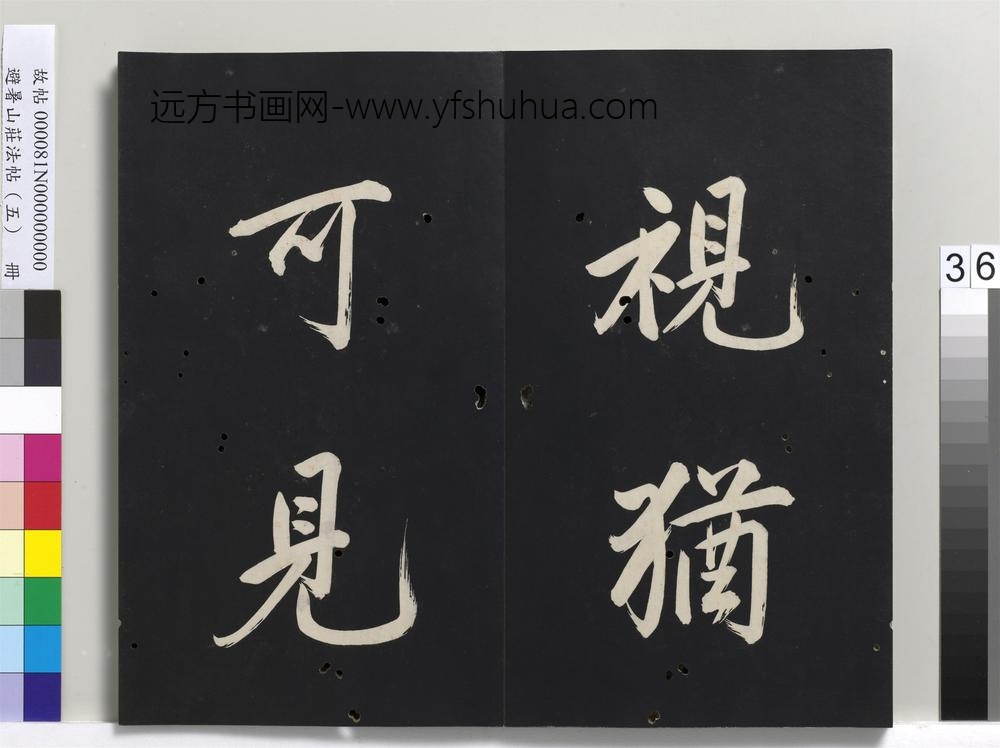 远方书画网-www.yfshuhua.com
視猶
可見
故帖 000081N000000000
避暑山莊法帖(五) 冊
36